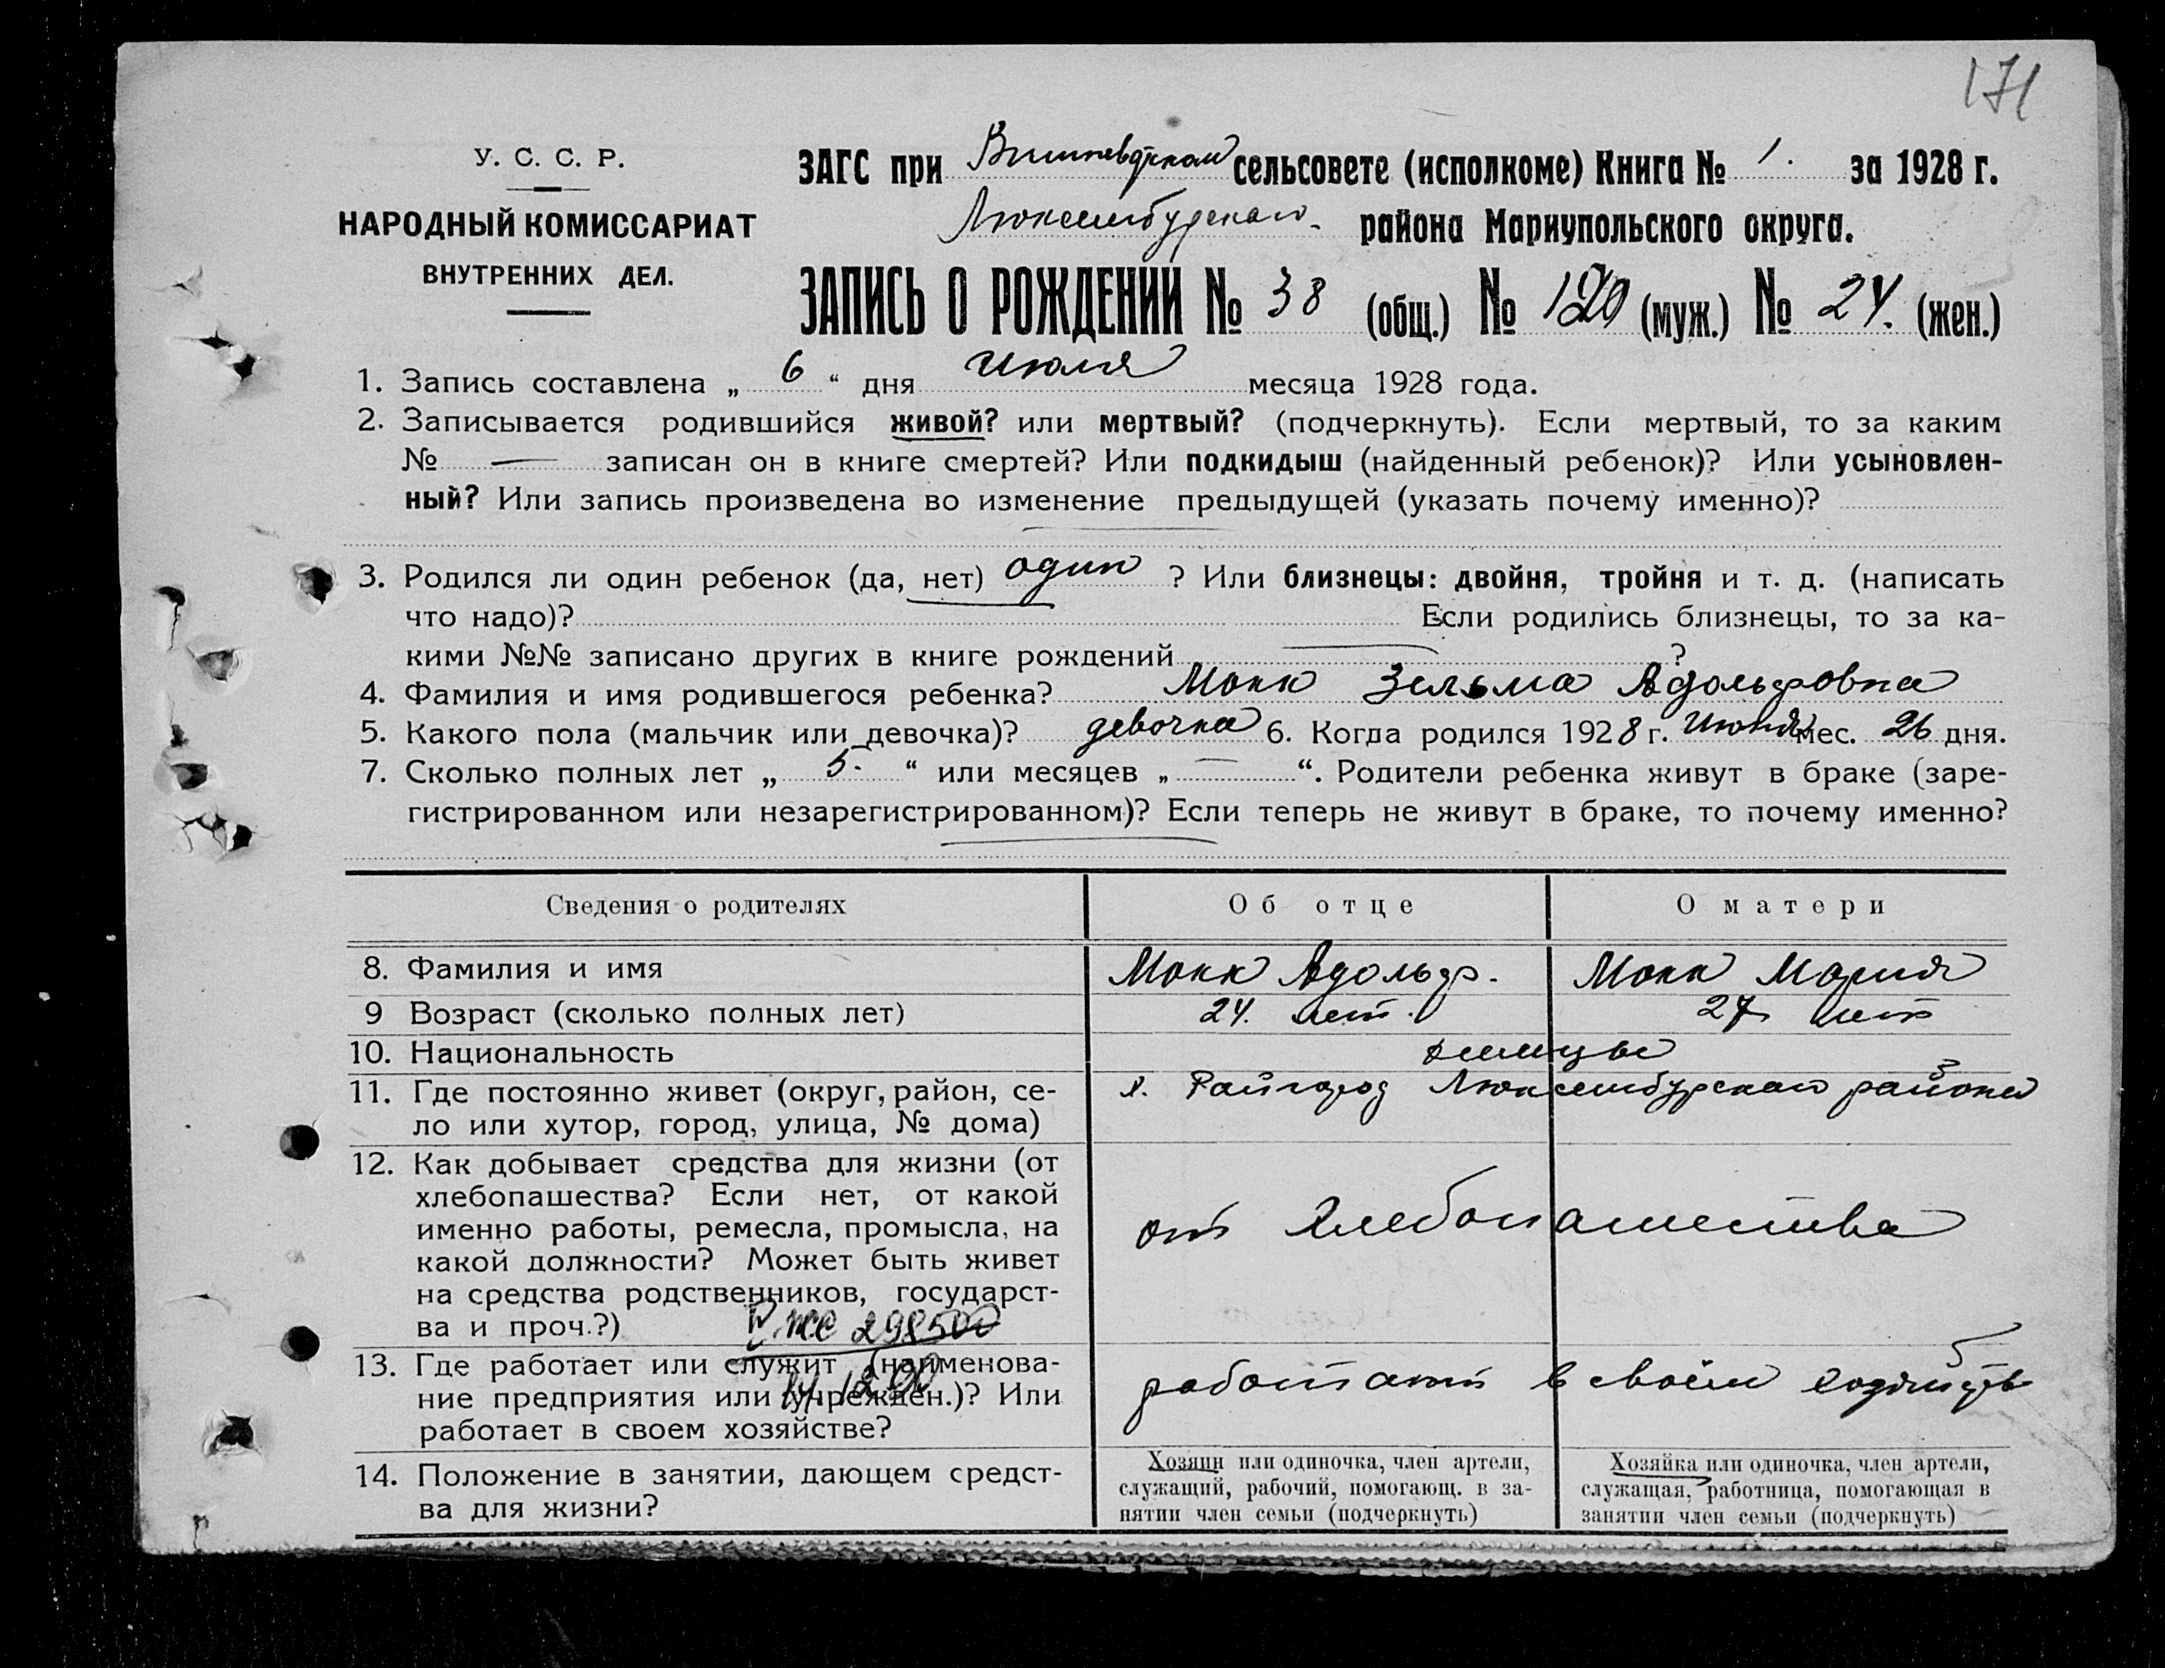 171
У. С. С. Р.
НАРОДНЫЙ КОМИССАРИАТ
ВНУТРЕННИХ ДЕЛ.
ЗАГС при сельсовете (исполкоме) Книга № 1. за 1928 г.
Люксембургского района Мариупольского округа.
ЗАПИСЬ О РОЖДЕНИИ № 38 (общ.) № (муж.) № 24. (жен.)
1. Запись составлена „ 6 “ дня Июля месяца 1928 года.
2. Записывается родившийся живой? или мертвый? (подчеркнуть). Если мертвый, то за каким
№ — записан он в книге смертей? Или подкидыш (найденный ребенок)? Или усыновлен-
ный? Или запись произведена во изменение предыдущей (указать почему именно)?
3. Родился ли один ребенок (да, нет) один ? Или близнецы: двойня, тройня и т. д. (написать
что надо)? Если родились близнецы, то за ка-
кими №№ записано других в книге рождений — ?
4. Фамилия и имя родившегося ребенка? Мокк Зельма Адольфовна
5. Какого пола (мальчик или девочка)? девочка 6. Когда родился 1928 г. Июня мес. 26 дня.
7. Сколько полных лет „ 5. “ или месяцев „ — “. Родители ребенка живут в браке (заре-
гистрированном или незарегистрированном)? Если теперь не живут в браке, то почему именно?
Сведения о родителях Об отце О матери
8. Фамилия и имя Мокк Адольф. Мокк Мария
9 Возраст (сколько полных лет) 24. лет. 27 лет
10. Национальность немцы
11. Где постоянно живет (округ, район, се- х. Райгород Люксембургского района
ло или хутор, город, улица, № дома)
12. Как добывает средства для жизни (от
хлебопашества? Если нет, от какой
именно работы, ремесла, промысла, на от хлебопашества
какой должности? Может быть живет
на средства родственников, государст-
ва и проч.?) 298500
13. Где работает или служит (наименова- работают в своём хозяйстве
ние предприятия или учрежден.)? Или
работает в своем хозяйстве?
14. Положение в занятии, дающем средст-
ва для жизни?
Хозяин или одиночка, член артели,
служащий, рабочий, помогающ. в за-
нятии член семьи (подчеркнуть)
Хозяйка или одиночка, член артели,
служащая, работница, помогающая в
занятии член семьи (подчеркнуть)